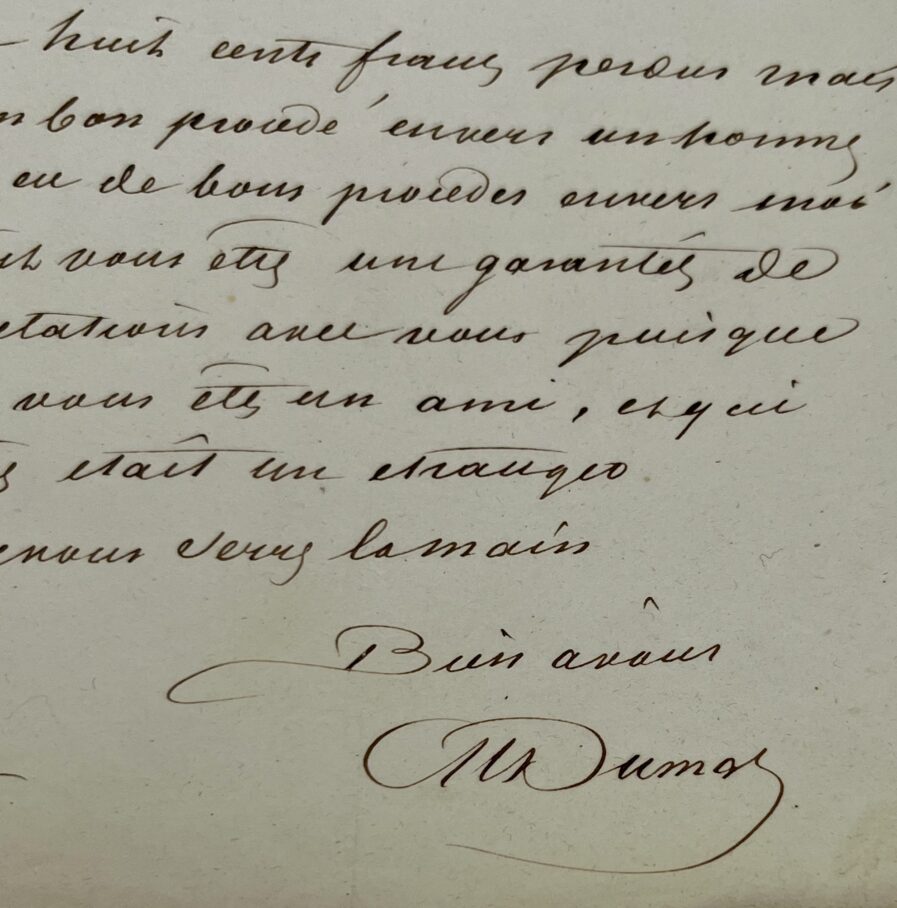 huit cents francs perdus mais
un bon procédé envers un homme
eu de bons procedes envers moi
vous etes une garantés de
avec vous puisque
vous êtes un ami, et qui
etait un etranger
vous serre la main
Bien avous
Alx Dumas